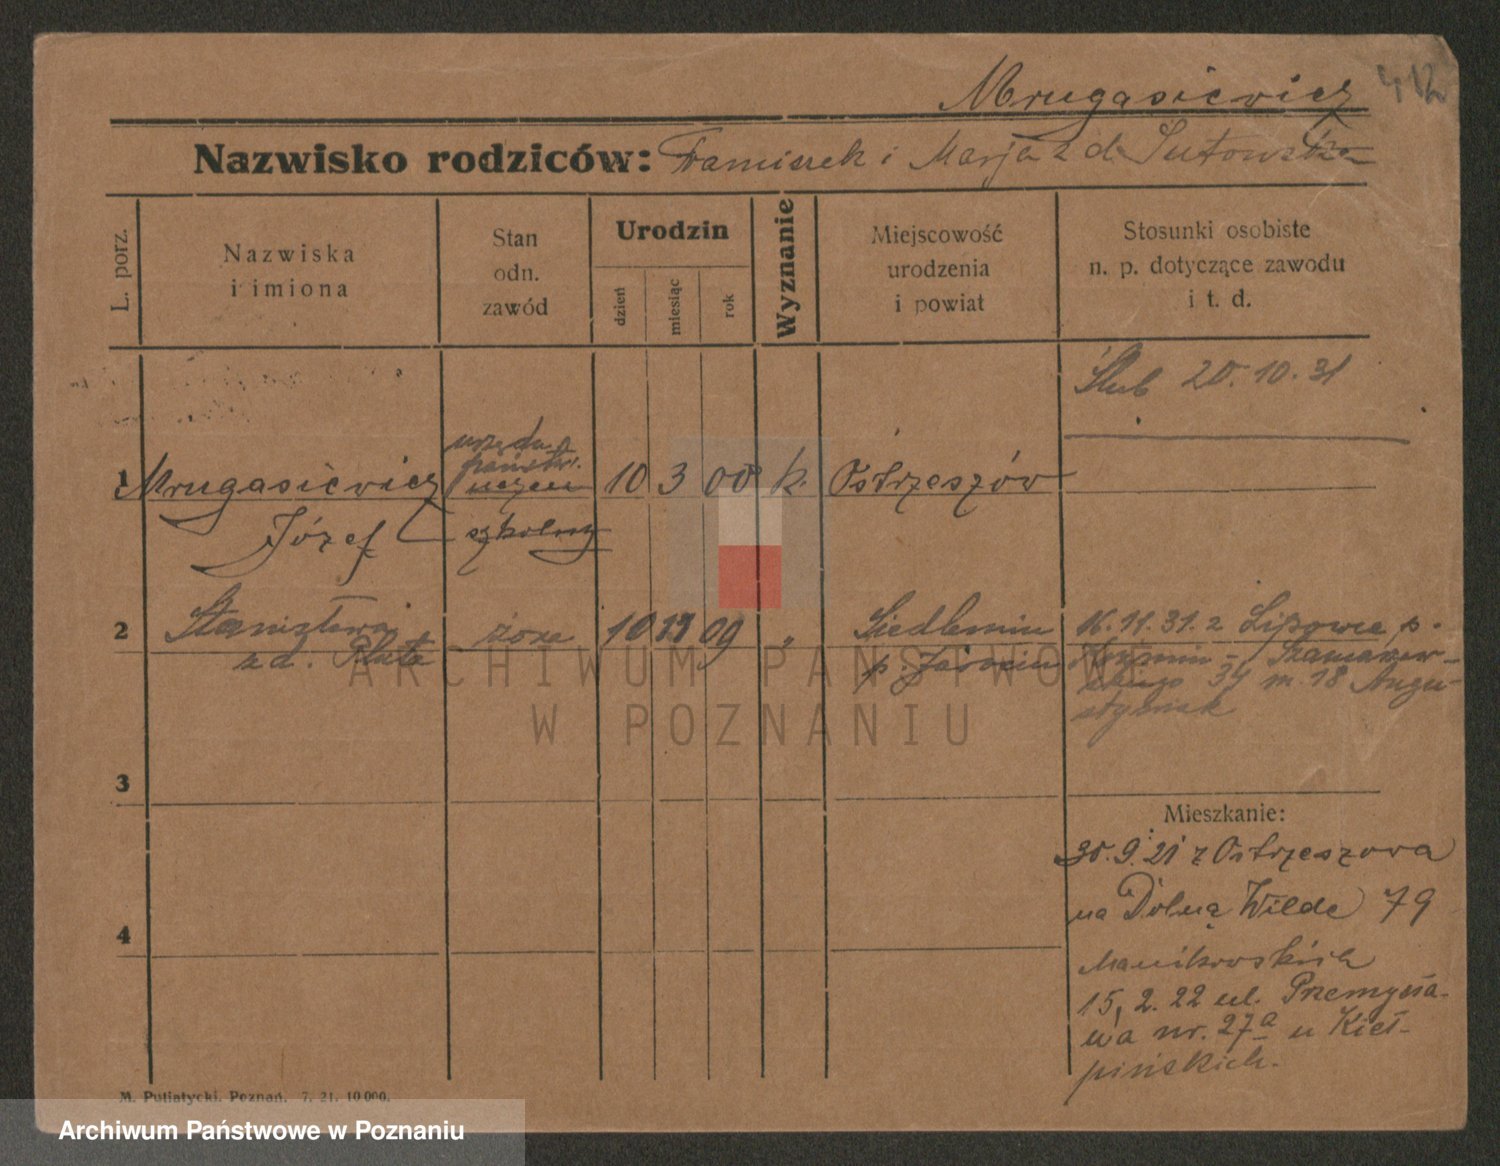 Mrugasiewicz 412
Nazwisko rodziców: Franciszek i Marja z d. Sutowska
L. porz.
Nazwiska
i imiona
Stan
odn.
zawód
Urodzin
dzień
miesiąc
rok
Wyznanie
Miejscowość
urodzenia
i powiat
Stosunki osobiste
n. p. dotyczące zawodu
i t. d.
Ślub 20.10.31
urzędn.
państw.
1 Mrugasiewicz uczeń 10 3 00 k. Ostrzeszów
Józef szkolny
2 Stanisława żona 10 11 09 " Siedlemin 16.11.31 z Lipowca p.
z d. Pluta p. Jarocin
34 m. 18 Augu-
styniak
3
Mieszkanie:
30.9.21 z Ostrzeszowa
na Dolną Wildę 79
4
Manikowskich
15.2.22 ul. Przemysła-
wa nr. 27a u Kieł-
pińskich.
M. Putiatycki, Poznań. 7. 21. 10 000.
ARCHIWUM PAŃSTWOWE
W POZNANIU
Archiwum Państwowe w Poznaniu